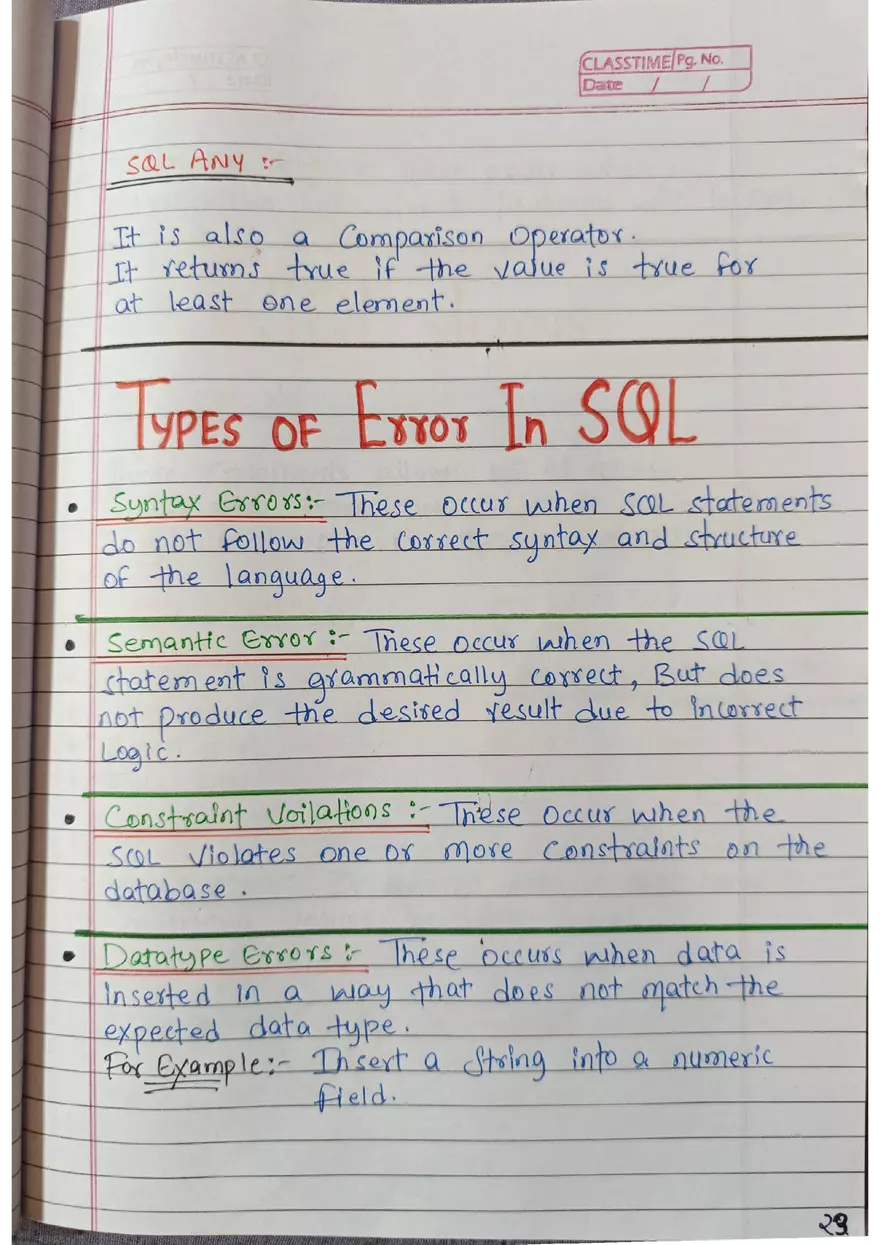 CLASSTIME Pg. No.
Date / /
SQL ANY :-
It is also a Comparison Operator.
It returns true if the value is true for
at least one element.
TYPES OF Error In SQL
• Syntax Errors:- These occur when SQL statements
do not follow the correct syntax and structure
of the language.
• Semantic Error :- These occur when the SQL
statement is grammatically correct, But does
not produce the desired result due to incorrect
Logic.
• Constraint Voilations :- These occur when the
SQL violates one or more constraints on the
database.
• Datatype Errors :- These occurs when data is
inserted in a way that does not match the
expected data type.
For Example:- Insert a string into a numeric
field.
29